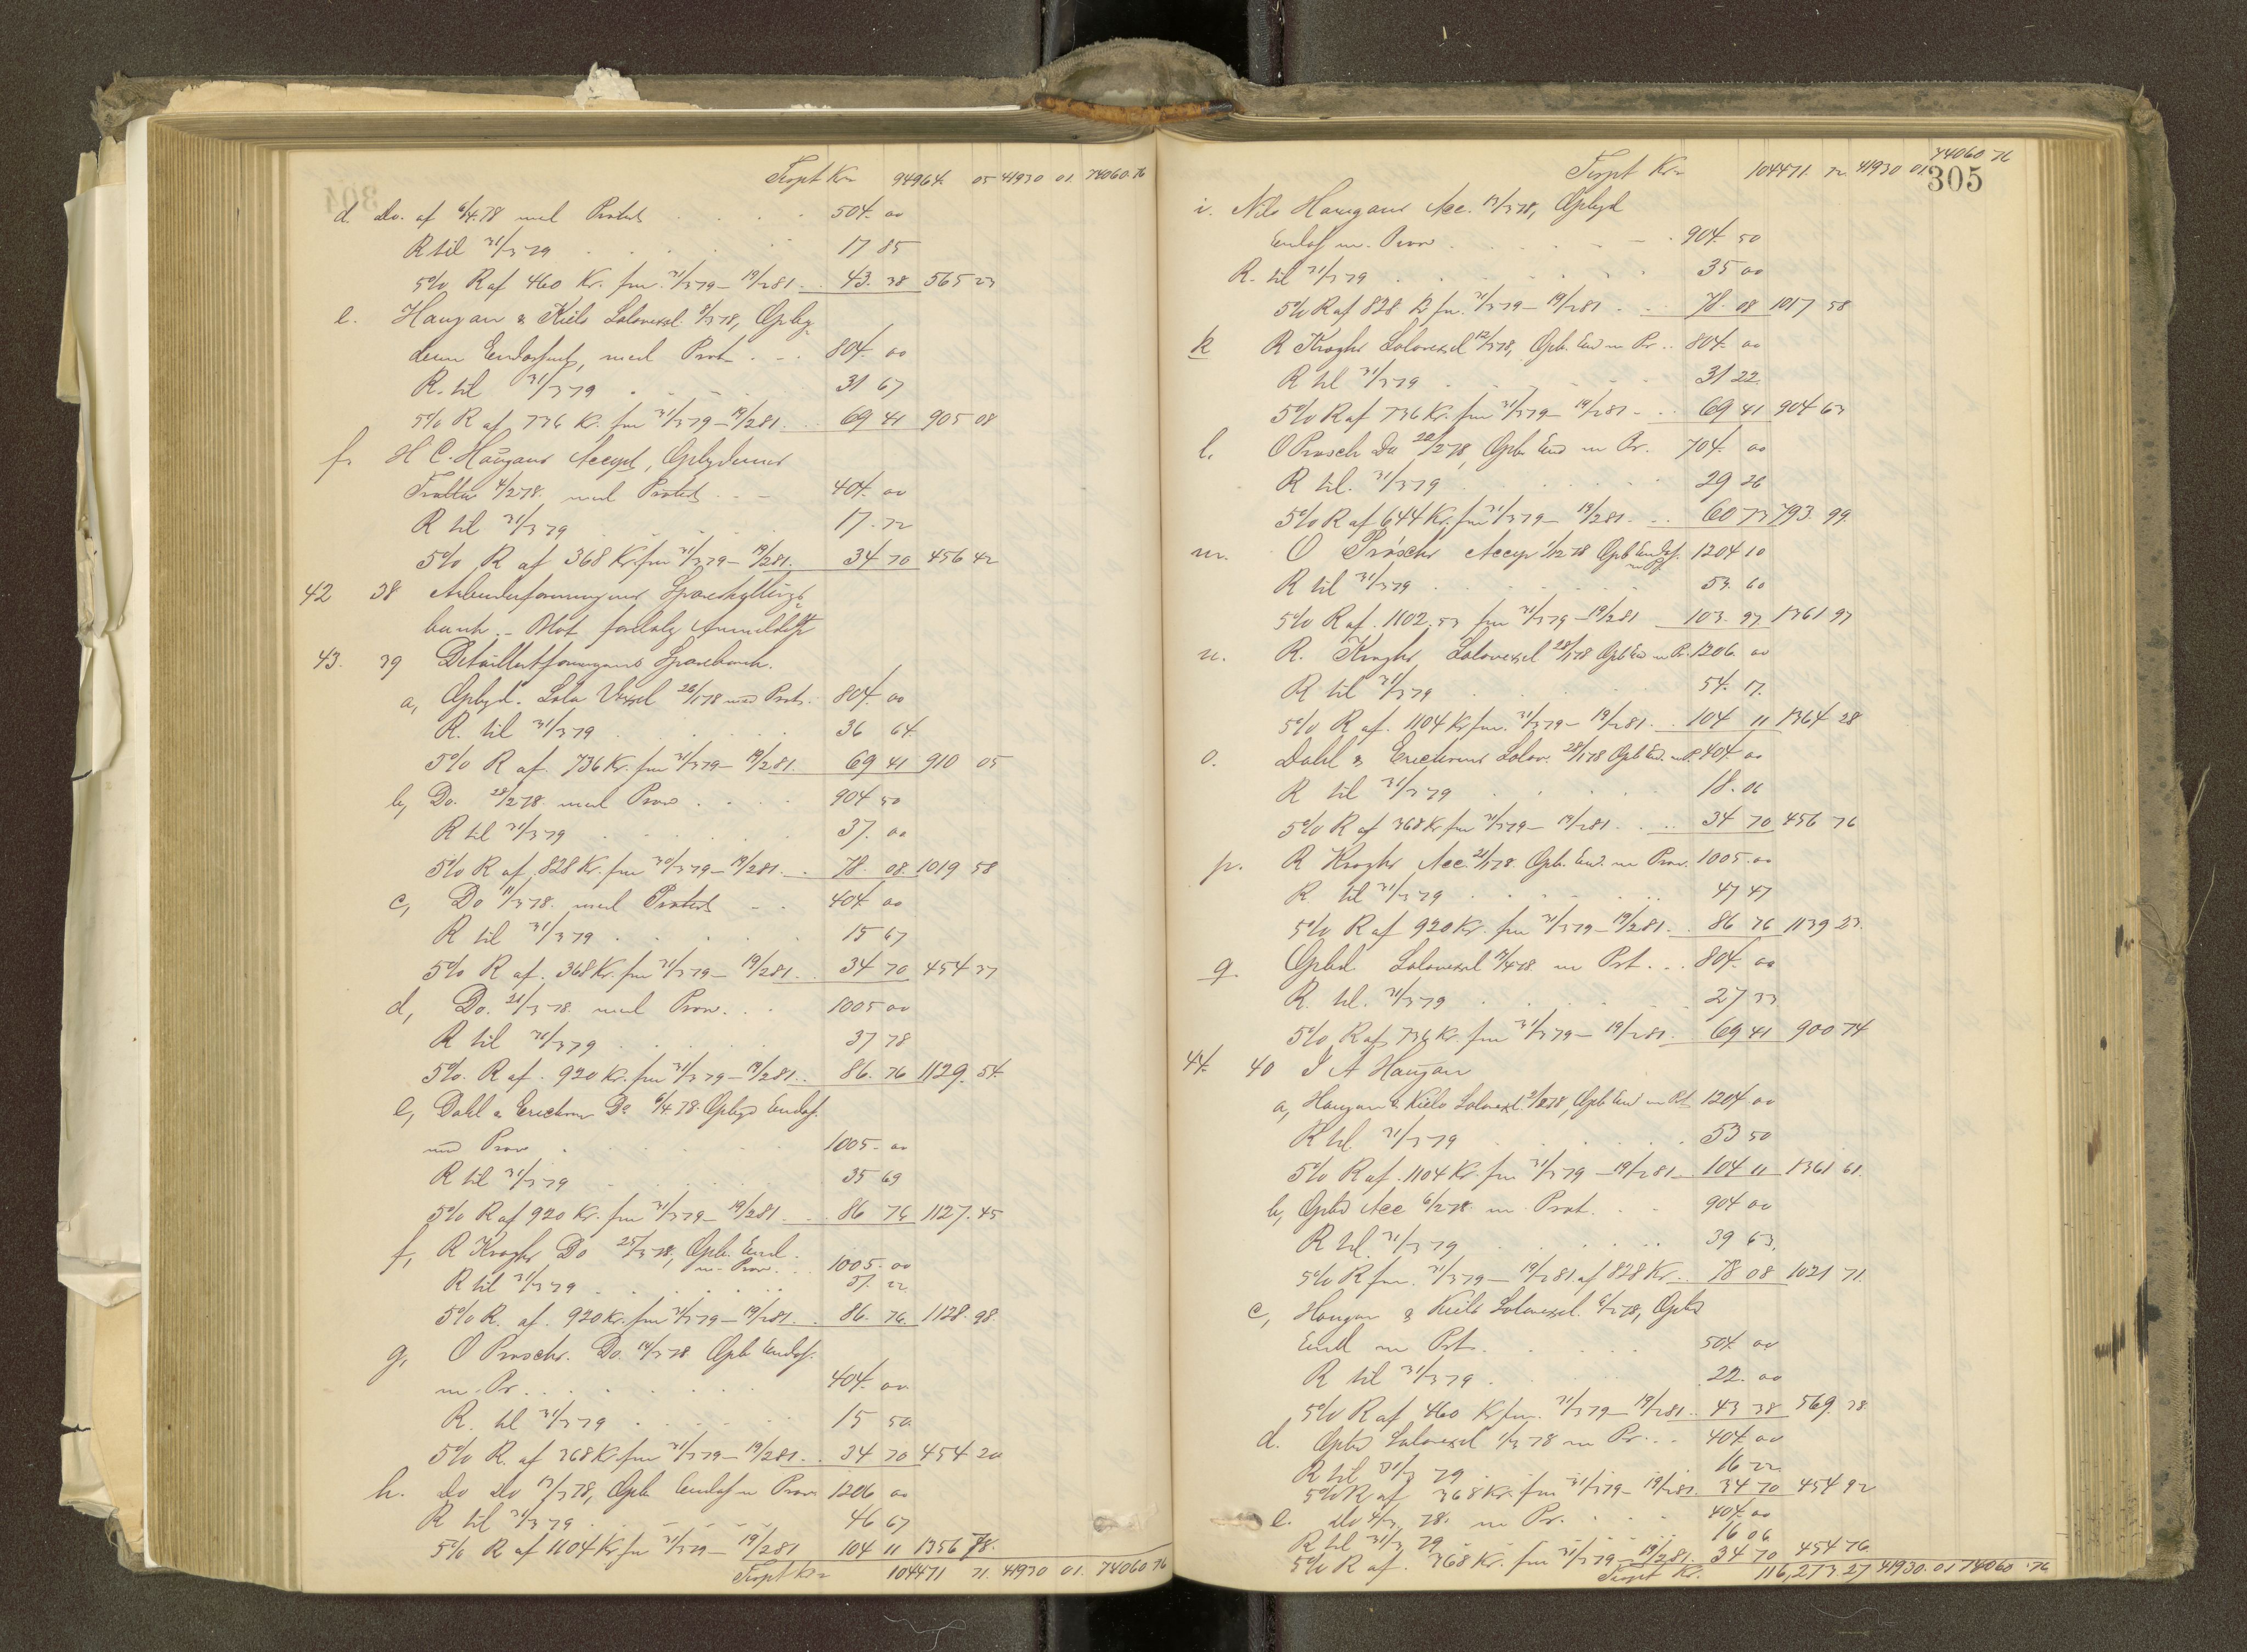 Trspt Kr 94964. 05 41930 01. 74060.76
d Do. af 6/4.78 med Protest 504. 00
R til 31/3 79 17 85
5% R af 460 Kr. fra 31/3 79 – 19/2 81 43. 38 565 23
e. Haugan & Kiels Solavexl. 9/3 78, Opby-
dern Endossmt, med Prot 804. 00
R. til 31/3 79 31 67
5% R af 736 Kr. fra 31/3 79 – 19/2 81 69 41 905 08
f. H C. Haugans Accept, Opbydernes
Tratte 4/2 78. med Protest 404. 00
R til 31/3 79 17. 72
5% R af 368 Kr. fra 31/3 79 – 19/2 81. 34 70 456 42
42 38 Arbeiderforeningens Spareskyllings
bank. – Mot forelølig Anmeldelse
43. 39 Detaillistforeningens Sparebank.
a, Opbyd. Sola Vexel 28/1 78 med Prot. 804. 00
R. til 31/3 79 36 64
5% R af. 736 Kr. fra 31/3 79 – 19/2 81. 69 41 910 05
b, Do. 28/2 78. med Prov 904 50
R til 31/3 79 37. 00
5% R af 828 Kr. fra 30/3 79 – 19/2 81 78. 08. 1019 58
c, Do 11/3 78. med Protest 404. 00
R til 31/3 79 15 67
5% R af. 368 Kr. fra 31/3 79 – 19/2 81. 34 70 454 37
d, Do. 21/3 78. med Prov. 1005 00
R til 31/3 79 37 78
5%. R af. 920 Kr. fra 31/3 79 – 19/2 81. 86. 76 1129. 54.
e, Dahl & Erichsen Do 6/4 78. Opbyd Endos.
med Prov 1005. 00
R til 31/3 79 35 69
5% R af 920 Kr. fra 31/3 79 – 19/2 81 86 76 1127. 45
f, R Kroghs Do 25/3 78, Opb. End.
m. Prov. 1005. 00
R til 31/3 79 37. 22
5% R. af. 920 Kr. fra 31/3 79 – 19/2 81. 86. 76. 1128. 98.
g, O Proschs. Do. 14/3 78 Opb Endos.
m. Pr. 404. 00
R. til 31/3 79 15 50
5% R. af 368 Kr. fra 31/3 79 – 19/2 81. 34 70 454 20
h. Do Do 13/3 78, Opb. Endos m Prov 1206 00
R til 31/3 79 46 67
5% R af 1104 Kr fra 31/3 79 – 19/2 81 104 11 1356 78.
Trspt Kr 104471 71. 41930 01. 74060 76
305
Trspt Kr 104471. 72 41930 01 74060 76
i. Nils Haugans Acc. 13/3 78, Opbyd
Endos m. Prov 904. 50
R. til 31/3 79 35 00
5% R af 828 K fra. 31/3 79 – 19/2 81 78. 08 1017 58
k R Kroghs Solavexel 12/3 78, Opb. End m Pr. 804. 00
R til 31/3 79 31 22.
5% R af 736 Kr. fra 31/3 79 – 19/2 81 69 41 904 63
l. O Prosch Do 22/2 78, Opb. End m Pr. 704. 00
R til. 31/3 79 29 26
5% R af 644 Kr. fra 31/3 79 – 19/2 81. 60 73 793. 99.
m. O Proschs Accept 1/2 78 Opb Endos. 1204 10
R til 31/3 79 53. 60
5% R af. 1102. 53 fra 31/3 79 – 19/2 81 103. 97 1361 97
n. R. Kroghs Solavexel 28/1 78 Opb End m Pr. 1206. 00
R til 31/3 79 54. 17.
5% R af. 1104 Kr fra. 31/3 79 – 19/2 81. 104 11 1364 28
o. Dahl & Erichsens Solav. 28/1 78 Opb End. m P. 404. 00
R til 31/3 79 18. 06
5% R af 368 Kr fra 31/3 79 – 19/2 81. 34 70 456 76
p. R Kroghs Acc. 21/1 78. Opb. End. m Prov. 1005. 00
R til 31/3 79 47 47
5% R af 920 Kr. fra 31/3 79 – 19/2 81. 86 76 1139 23.
q. Opbd. Solavexel 17/4 78. m Prt. 804. 00
R. til. 31/3 79 27 33
5% R af 736 Kr. fra 31/3 79 – 19/2 81. 69 41 900 74
44. 40 I A Haugan
a, Haugan & Kiels Solavexl. 2/2 78, Opb End m Pt 1204 00
R til 31/3 79 53 50
5% R af. 1104 Kr. fra 31/3 79 – 19/2 81 104 11 1361 61.
b, Opbd Acc 6/2 78. m Prot. 904 00
R til. 31/3 79 39 63.
5% R fra. 31/3 79 – 19/2 81 af 828 Kr. 78 08 1021 71.
c, Haugan & Kiels Solavexel. 6/2 78, Opbd
End m Prt. 504. 00
R til 31/3 79 22. 00
5% R af 460 Kr fra. 31/3 79 – 19/2 81. 43 38 569. 38
d. Opbd Solavexel 1/3 78 m Pr. 404. 00
R til 31/3 79 16 22.
5% R af 368 Kr. fra 31/3 79 – 19/2 81. 34 70 454 92
e. Do 4/3 78. m Pr. 404. 00
R til 31/3 79 16 06
5% R af. 368 Kr. fra 31/3 79 – 19/2 81. 34 70 454 76
Trspt Kr. 116,273. 27 41930. 01 74060. 76